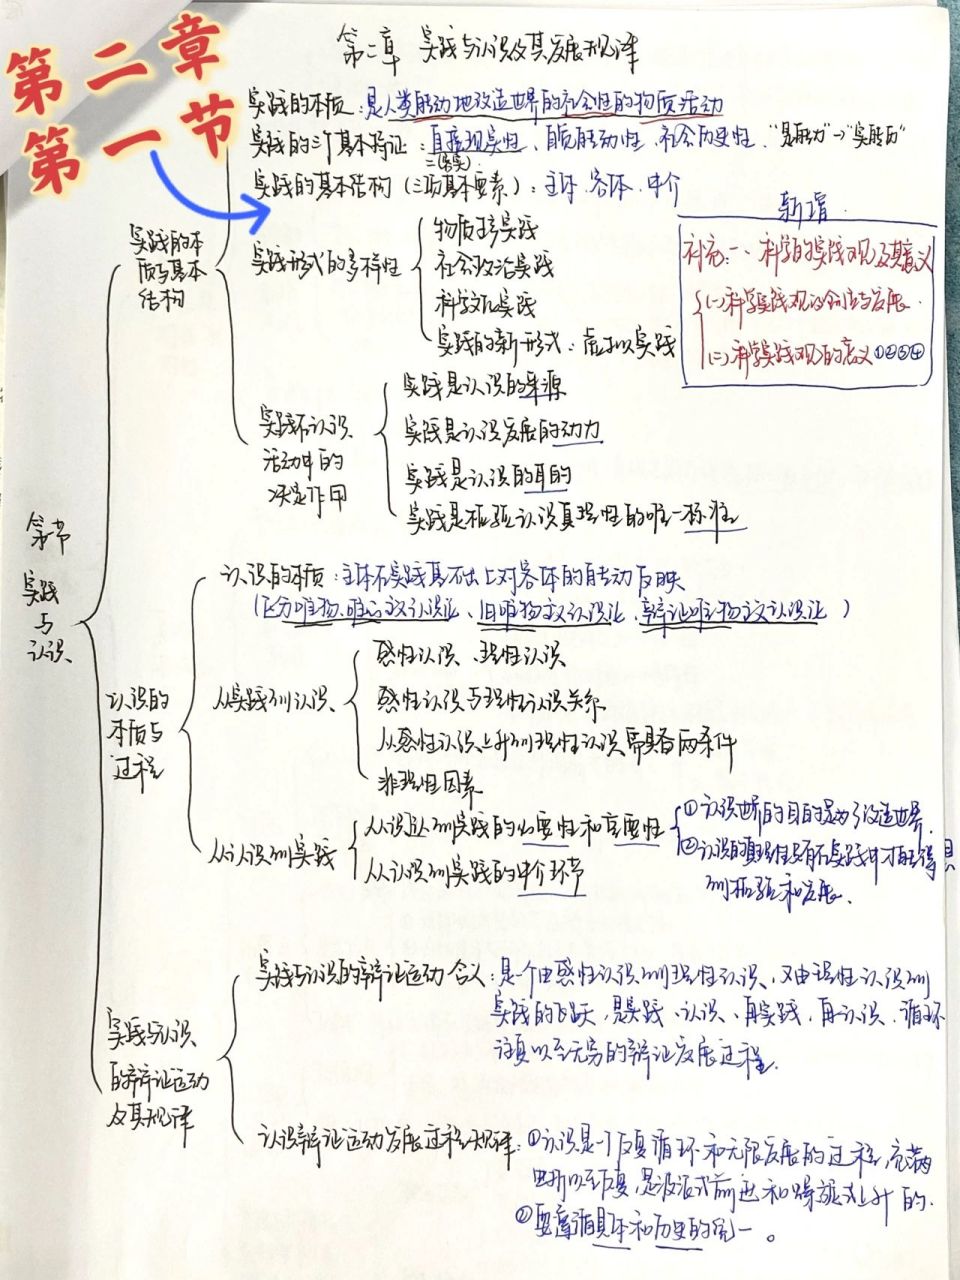 第二章
第一节
第二章 实践与认识及其发展规律
实践的本质：是人类能动地改造世界的社会性的物质活动
实践的三个基本特征：直接现实性、自觉能动性、社会历史性、
实践的基本结构（三项基本要素）：主体、客体、中介
实践的本
质与基本
结构
实践形式的多样性
物质生产实践
社会政治实践
科学文化实践
实践的新形式：虚拟实践
新增
补充：一、科学的实践观及其意义
(一)科学实践观的创立与发展
(二)科学实践观的意义①②③④
实践在认识
活动中的
决定作用
实践是认识的来源
实践是认识发展的动力
实践是认识的目的
实践是检验认识真理性的唯一标准
第一节
实践
与
认识
认识的
本质与
过程
认识的本质：主体在实践基础上对客体的能动反映
（区分唯物、唯心主义认识论、旧唯物主义认识论、辩证唯物主义认识论）
从实践到认识
感性认识、理性认识
感性认识与理性认识关系
从感性认识上升到理性认识需具备两条件
非理性因素
从认识到实践
从认识到实践的必要性和重要性
①认识世界的目的是为了改造世界
②认识的真理性只有在实践中才能得
到检验和发展、
从认识到实践的中介环节
实践与认识
的辩证运动
及其规律
实践与认识的辩证运动含义：是一个由感性认识到理性认识、又由理性认识到
实践的飞跃，是实践、认识、再实践、再认识、循环
往复以至无穷的辩证发展过程.
认识辩证运动发展过程规律：①认识是一个反复循环和无限发展的过程，充满
是波浪式前进和螺旋式上升的.
具体和历史的统一。